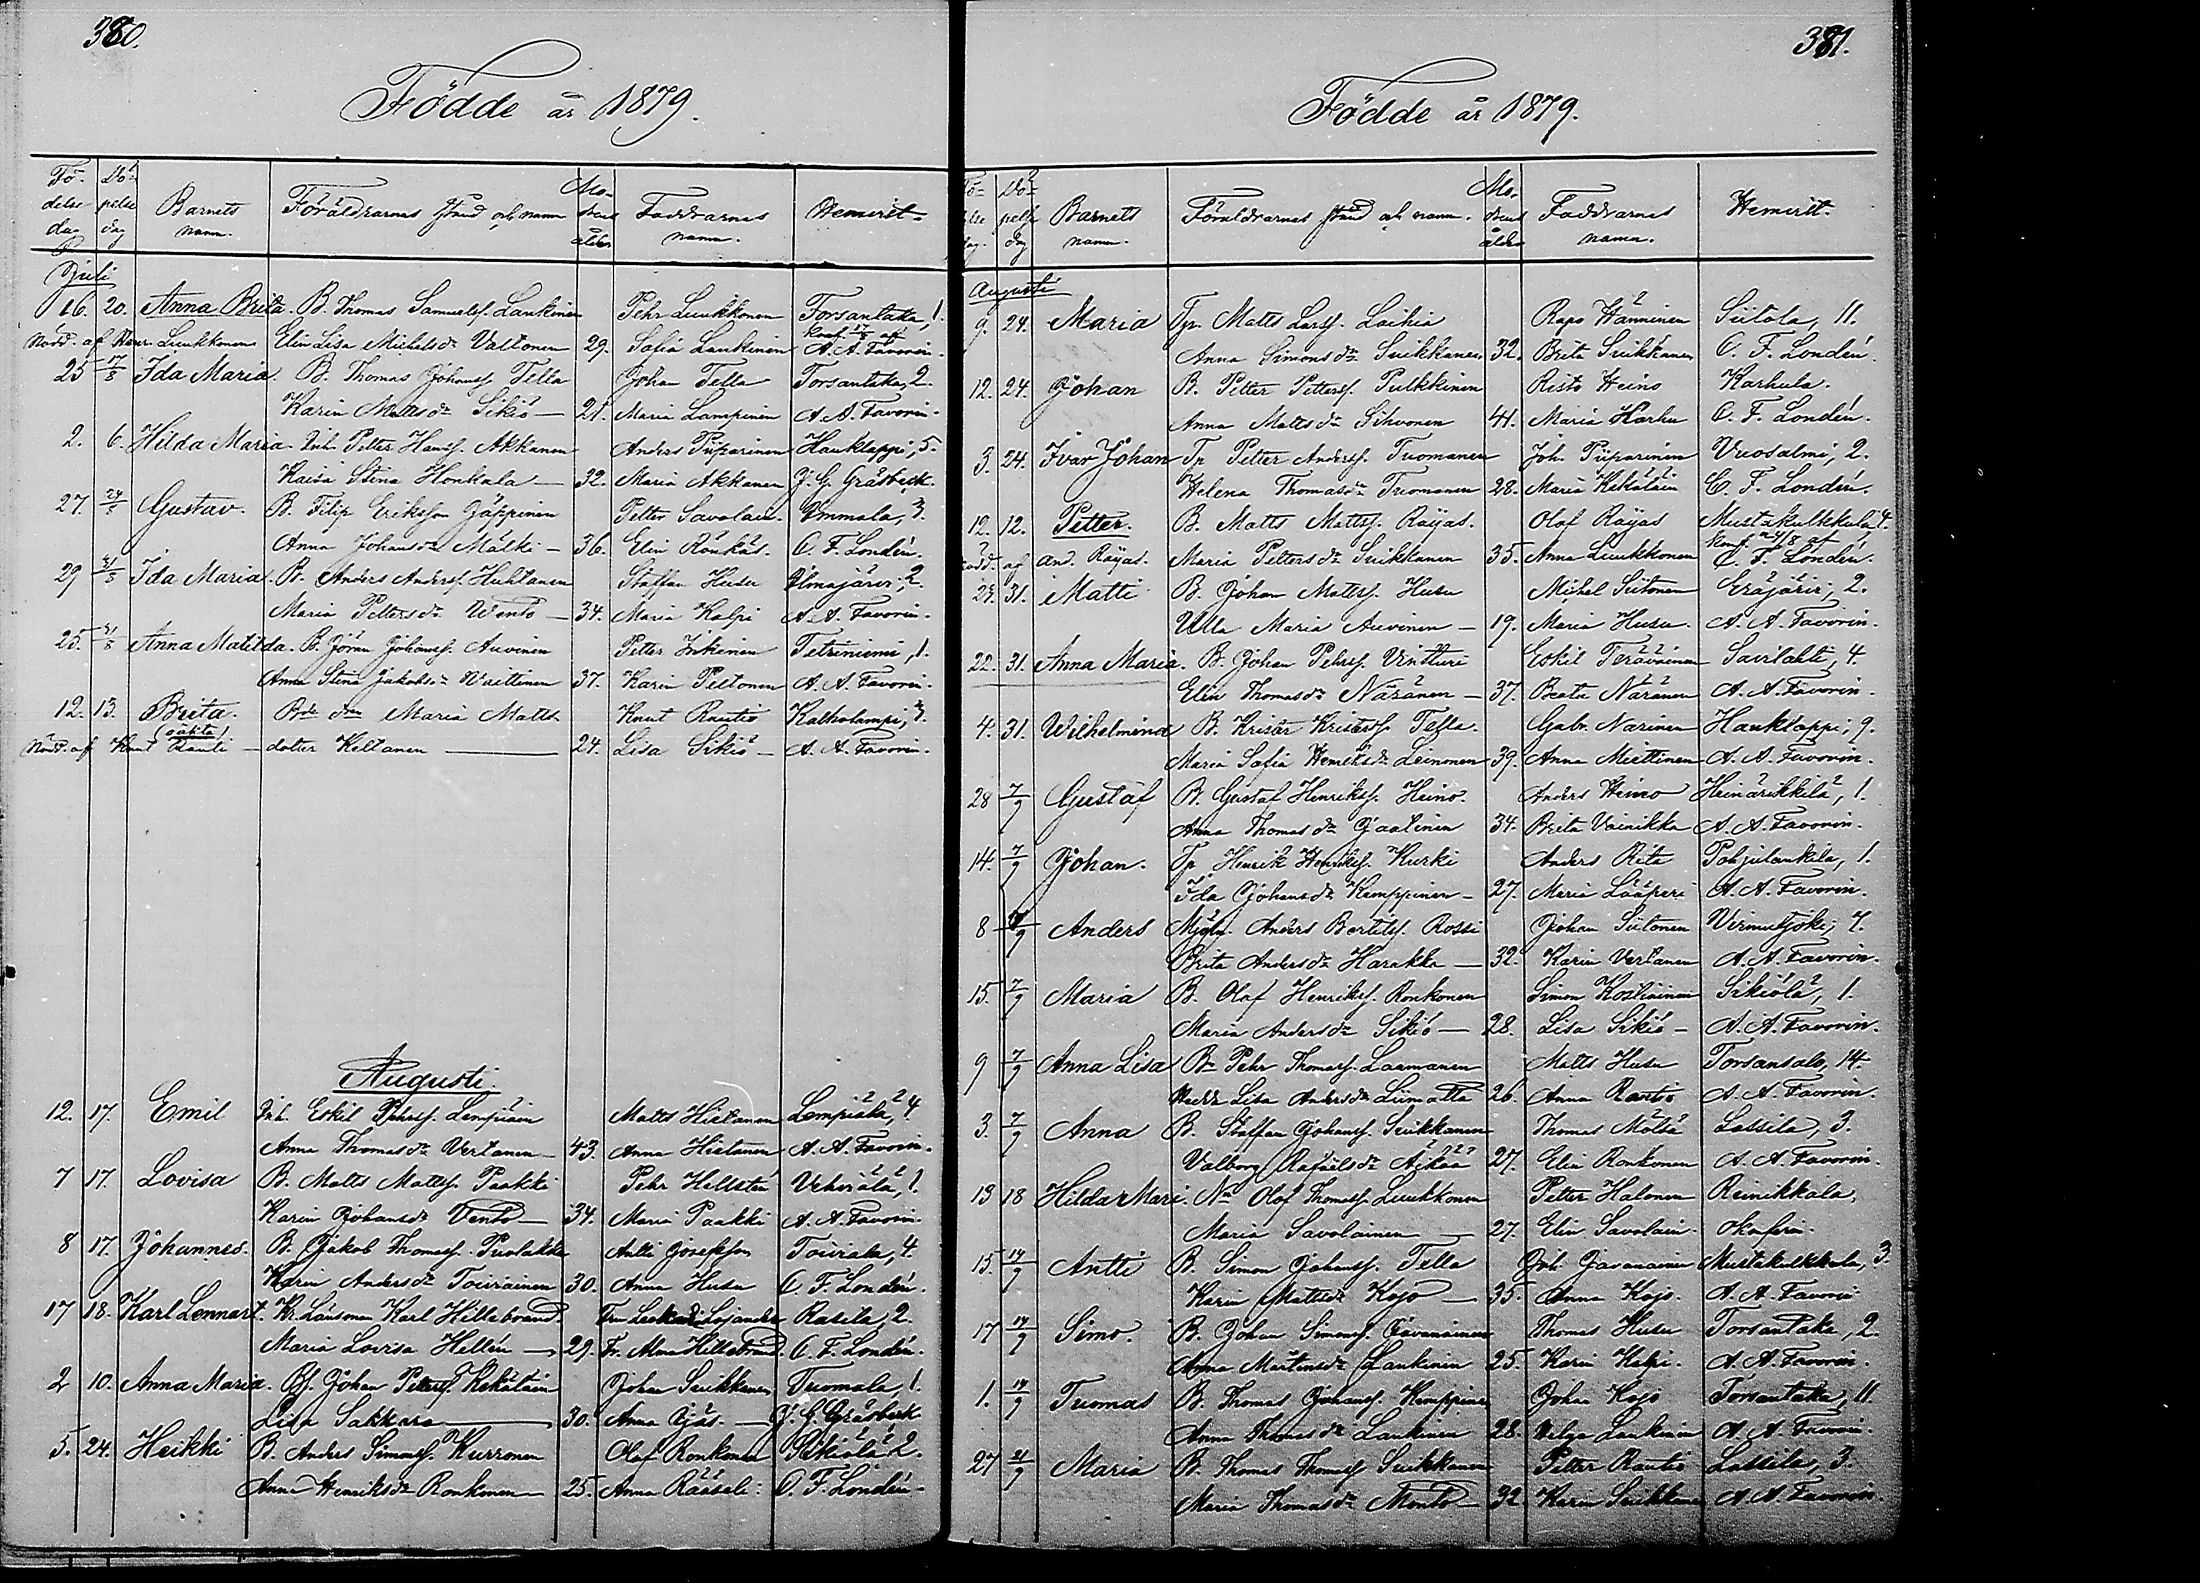 380.
Födde år 1879.
Fö- Dö-
delse pelse Barnets Föräldrarnas stånd och namn Mo- drens Faddrarnas Hemvist
dag dag namn. ålder namn.
Juli
16. 20. Anna Brita. B. Thomas Samuelss. Lankinen Pehr Luukkonen Torsantaka, 1.
Nödd. af Luukkonen Elin Lisa Michelsdr Valtonen 29. Sofia Lankinen A. A. Favorin.
25 17/8 Ida Maria. B. Thomas Johanss. Tella Johan Tella Torsantaka, 2.
Karin Mattsdr Sikiö — 21. Maria Lampinen A. A. Favorin.
2. 6. Hilda Maria. Inh. Petter Hanss. Akkanen Anders Piiparinen Hauklappi, 5.
Kaisa Stina Honkala — 32. Maria Akkanen J. G. Gråsbeck.
27. 24/8 Gustav. B. Filip Eriksson Jäppinen Petter Savolain. Ommala, 3.
Anna Johansdr Mälki — 36. Elin Rönkäs. C. F. Londén.
29 31/8 Ida Maria. B. Anders Anderss. Huhtanen Staffan Husu Ilmajärvi, 2.
Maria Pettersdr Wento — 34. Maria Kalpi A. A. Favorin.
25. 31/8 Anna Matilda. B. Jöran Johanss. Auvinen Petter Inkinen Tetriniemi, 1.
Anna Stina Jakobsdr Vaittinen 37. Karin Peltonen A. A. Favorin.
12. 13. Brita. Maria Matts Knut Rautio Kalholampi, 3.
(oäkta)
Nödd. af Knut Rauti — dotter Keltanen — 24. Lisa Sikiö — A. A. Favorin.
Augusti.
12. 17. Emil Inh. Eskil Pehrss. Lempiäin Matts Hietanen Lempiälä, 4
Anna Thomasdr Vertanen — 43. Anna Hietanen A. A. Favorin.
7 17. Lovisa B. Matts Mattss. Paakki Pehr Hellstén Urheiälä, 1.
Karin Johansdr Vento — 34. Maria Paakki A. A. Favorin.
8 17. Johannes. B. Jakob Thomass. Puolakka Antti Josefsson Toiviala, 4.
Karin Andersdr Toiviainen 30. Anna Husu C. F. Londén.
17 18. Karl Lennart. Kr. Länsman Karl Hillebrand Lojander Rasila, 2.
Maria Lovisa Hellén — 29. Fr. Alma Hillebrand. C. F. Londén.
2 10. Anna Maria. Johan Petterss. Kekäläin Johan Suikkanen Tuomala, 1.
Lisa Sakkara — 30. Anna — J. G. Gråsbeck
5. 24. Heikki B. Anders Simonss. Kurronen Olof Ronkonen 2.
Anna Henriksdr Ronkonen — 25. Anna Rääsäli: C. F. Londén.
381.
Födde år 1879.
Dö-
pelse Barnets Föräldrarnas stånd och namn. Mo- drens Faddrarnas Hemvist.
dag namn. ålder namn.
Augusti
9. 24. Maria Tp. Matts Larss. Laihia Rapo Hänninen Siitola, 11.
Anna Simonsdr Suikkanen 32. Brita Suikkanen C. F. Londén.
12. 24. Johan B. Petter Petterss. Pulkkinen Risto Heino Karhula.
Anna Mattsdr Sihvonen 41. Maria Karhu C. F. Londén.
3. 24. Ivar Johan Tp Petter Anderss. Tuomanen Joh. Piiparinen Vuosalmi, 2.
Helena Thomasdr Tuomanen 28. Maria Kekäläin C. F. Londén.
12. 12. Petter. B. Matts Mattss. Räjäs. Olof Räjäs Mustakulkkula, 4.
af And. Räjäs. Maria Pettersdr Suikkanen 35. Anna Luukkonen C. F. Londén.
31. Matti B. Johan Mattss. Husu Michel Siitonen Eräjärvi, 2.
Ulla Maria Auvinen — 19. Maria Husu. A. A. Favorin.
22. 31. Anna Maria. B. Johan Pehrss. Vintturi Eskil Teräväinen Savilahti, 4.
Elin Thomasdr Näränen — 37. Beata Näränen A. A. Favorin.
4. 31. Wilhelmina B. Krister Kristerss. Tella. Gabr. Narinen Hauklappi, 9.
Maria Sofia Henriksdr Leinonen 39. Anna Miettinen A. A. Favorin.
28 7/9 Gustaf B. Gustaf Henrikss. Heino. Anders Heino Heinärikkilä, 1.
Anna Thomasdr Jaatinen 34. Brita Vainikka A. A. Favorin.
14. 7/9 Johan. Tp Henrik Henrikss. Kurki Anders Rita Pohjulankila, 1.
Ida Johansdr Kemppinen — 27. Maria Lääperi A. A. Favorin.
8 /9 Anders Anders Bertilss. Rossi Johan Siitonen Virmutjoki, 7.
Brita Andersdr Harakka — 32. Karin Vertanen A. A. Favorin.
15. 7/9 Maria B. Olof Henrikss. Ronkonen Simon Kostiainen Sikiölä, 1.
Maria Andersdr Sikiö — 28. Lisa Sikiö — A. A. Favorin.
9 7/9 Anna Lisa Bs Pehr Thomass. Laamanen Matts Husu Torsansalo, 14.
Hedda Lisa Andersdr Liimatta 26. Anna Rautio A. A. Favorin.
3. 7/9 Anna B. Staffan Johanss. Suikkanen Thomas Mölsä Lassila, 3.
Valborg Rafaelsdr Äikää 27. Elin Ronkonen A. A. Favorin.
13 18 Hilda Mari. Olof Thomass. Luukkonen Petter Halonen Reinikkala,
Maria Savolainen — 27. Elin Savolain.
15. 14/9 Antti B. Simon Johanss. Tella Joh. Javanainen Mustakulkkula, 3.
Karin Mattsdr Kojo — 35. Anna Kojo. A. A. Favorin
17 14/9 Simo. B. Johan Simonss. Javanainen Thomas Husu Torsantaka, 2.
Anna Mårtensdr Lankinen 25. Karin Kalpi. A. A. Favorin.
1. 14/9 Tuomas B. Thomas Johanss. Kemppinen Johan Kojo Torsantaka, 11.
Anna Thomasdr Lankinen 28. Helga Lankinen A. A. Favorin.
27 21/9 Maria B. Thomas Thomass Suikkanen Petter Rautio Lassila, 3.
Maria Thomasdr Monto — 32 Karin Suikkanen A. A. Favorin.